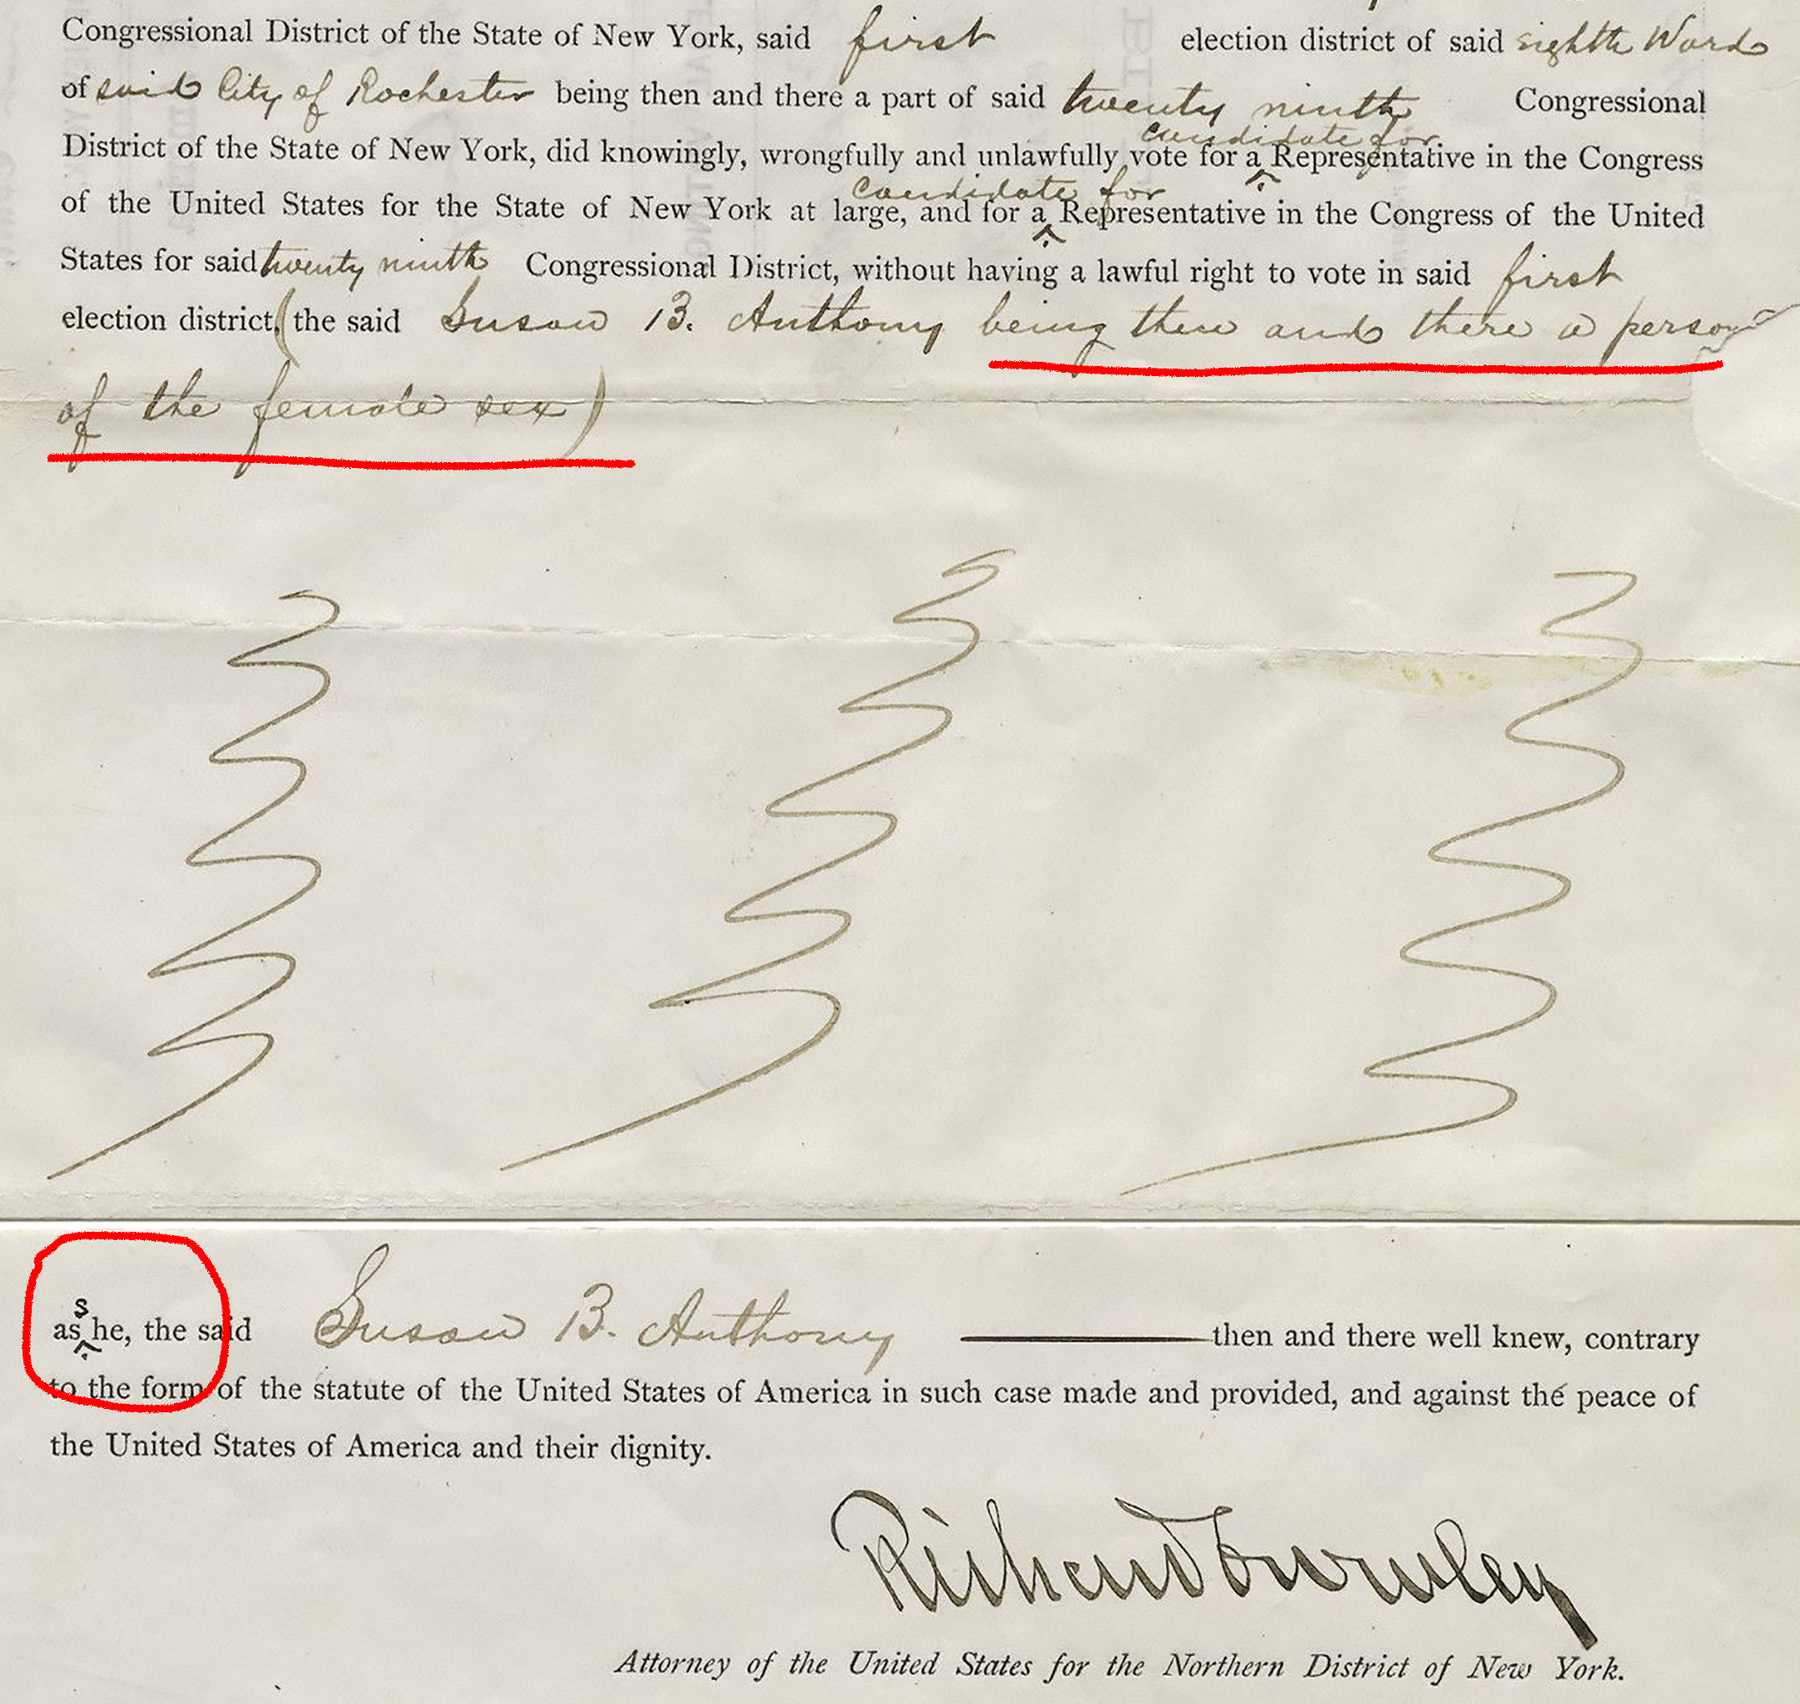 Congressional District of the State of New York, said first election district of said eighth Ward
of said City of Rochester being then and there a part of said twenty ninth Congressional
candidate for
District of the State of New York, did knowingly, wrongfully and unlawfully vote for a ^ Representative in the Congress
candidate for
of the United States for the State of New York at large, and for a ^ Representative in the Congress of the United
States for said twenty ninth Congressional District, without having a lawful right to vote in said first
election district, (the said Susan B. Anthony being then and there a person
of the female sex)
s
as ^ he, the said Susan B. Anthony then and there well knew, contrary
to the form of the statute of the United States of America in such case made and provided, and against the peace of
the United States of America and their dignity.
Richard Crowley
Attorney of the United States for the Northern District of New York.